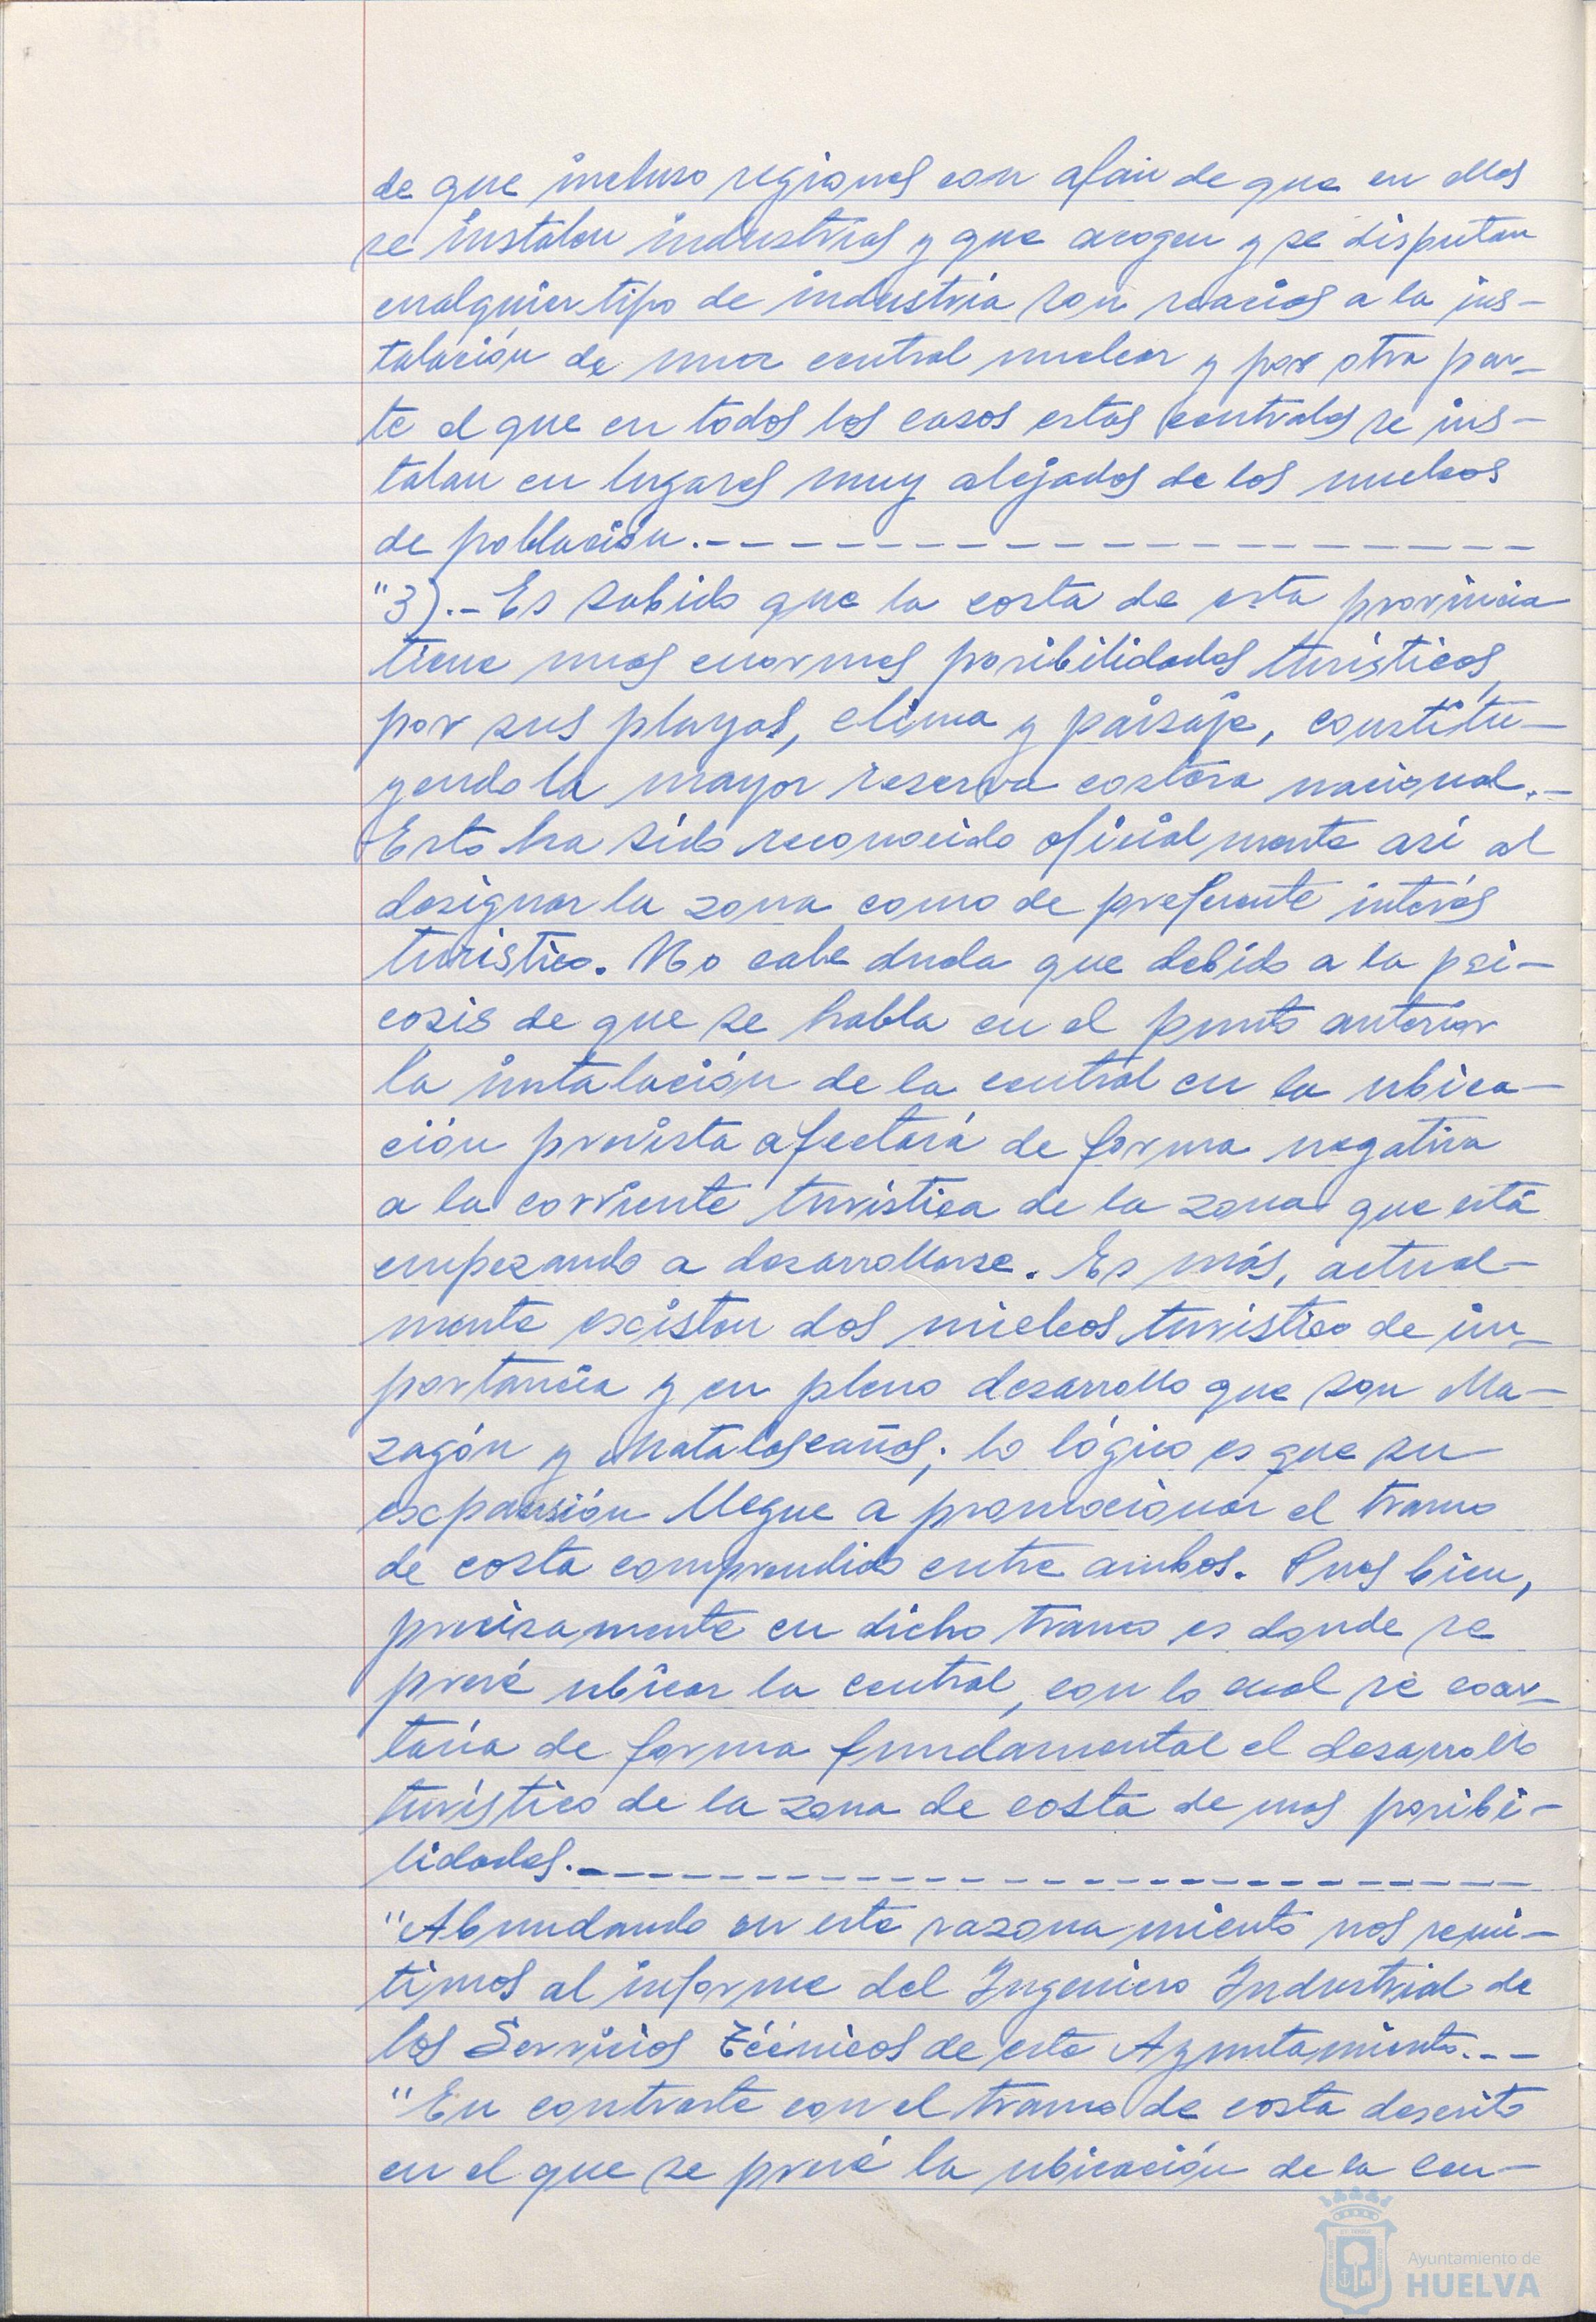 de que incluso regiones con afán de que en ellas
se instalen industrias y que acogen y se disputan
cualquier tipo de industria son reacias a la ins-
talación de una central nuclear y por otra par-
te el que en todos los casos estas centrales se ins-
talan en lugares muy alejados de los nucleos
de población.-
"3).- Es sabido que la costa de esta provincia
tiene unas enormes posibilidades turísticas
por sus playas, clima y paisaje, constitu-
yendo la mayor reserva costera nacional.-
Esto ha sido reconocido oficialmente asi al
designar la zona como de preferente interés
turistico. No cabe duda que debido a la psi-
cosis de que se habla en el punto anterior
la instalación de la central en la ubica-
ción prevista afectará de forma negativa
a la corriente turística de la zona que está
empezando a desarrollarse. Es más, actual-
mente existen dos núcleos turístico de im-
portancia y en pleno desarrollo que son Ma-
zagón y Matalascañas; lo lógico es que su
expansión llegue a promocionar el tramo
de costa comprendido entre ambos. Pues bien,
precisamente en dicho tramo es donde se
prevé ubicar la central, con lo cual se coar-
taría de forma fundamental el desarrollo
turístico de la zona de costa de mas posibi-
lidades.-
"Abundando en este razonamiento nos remi-
timos al informe del Ingeniero Industrial de
los Servicios Técnicos de este Ayuntamiento.--
"En contraste con el tramo de costa descrito
en el que se prevé la ubicación de la cen-
Ayuntamiento de
HUELVA